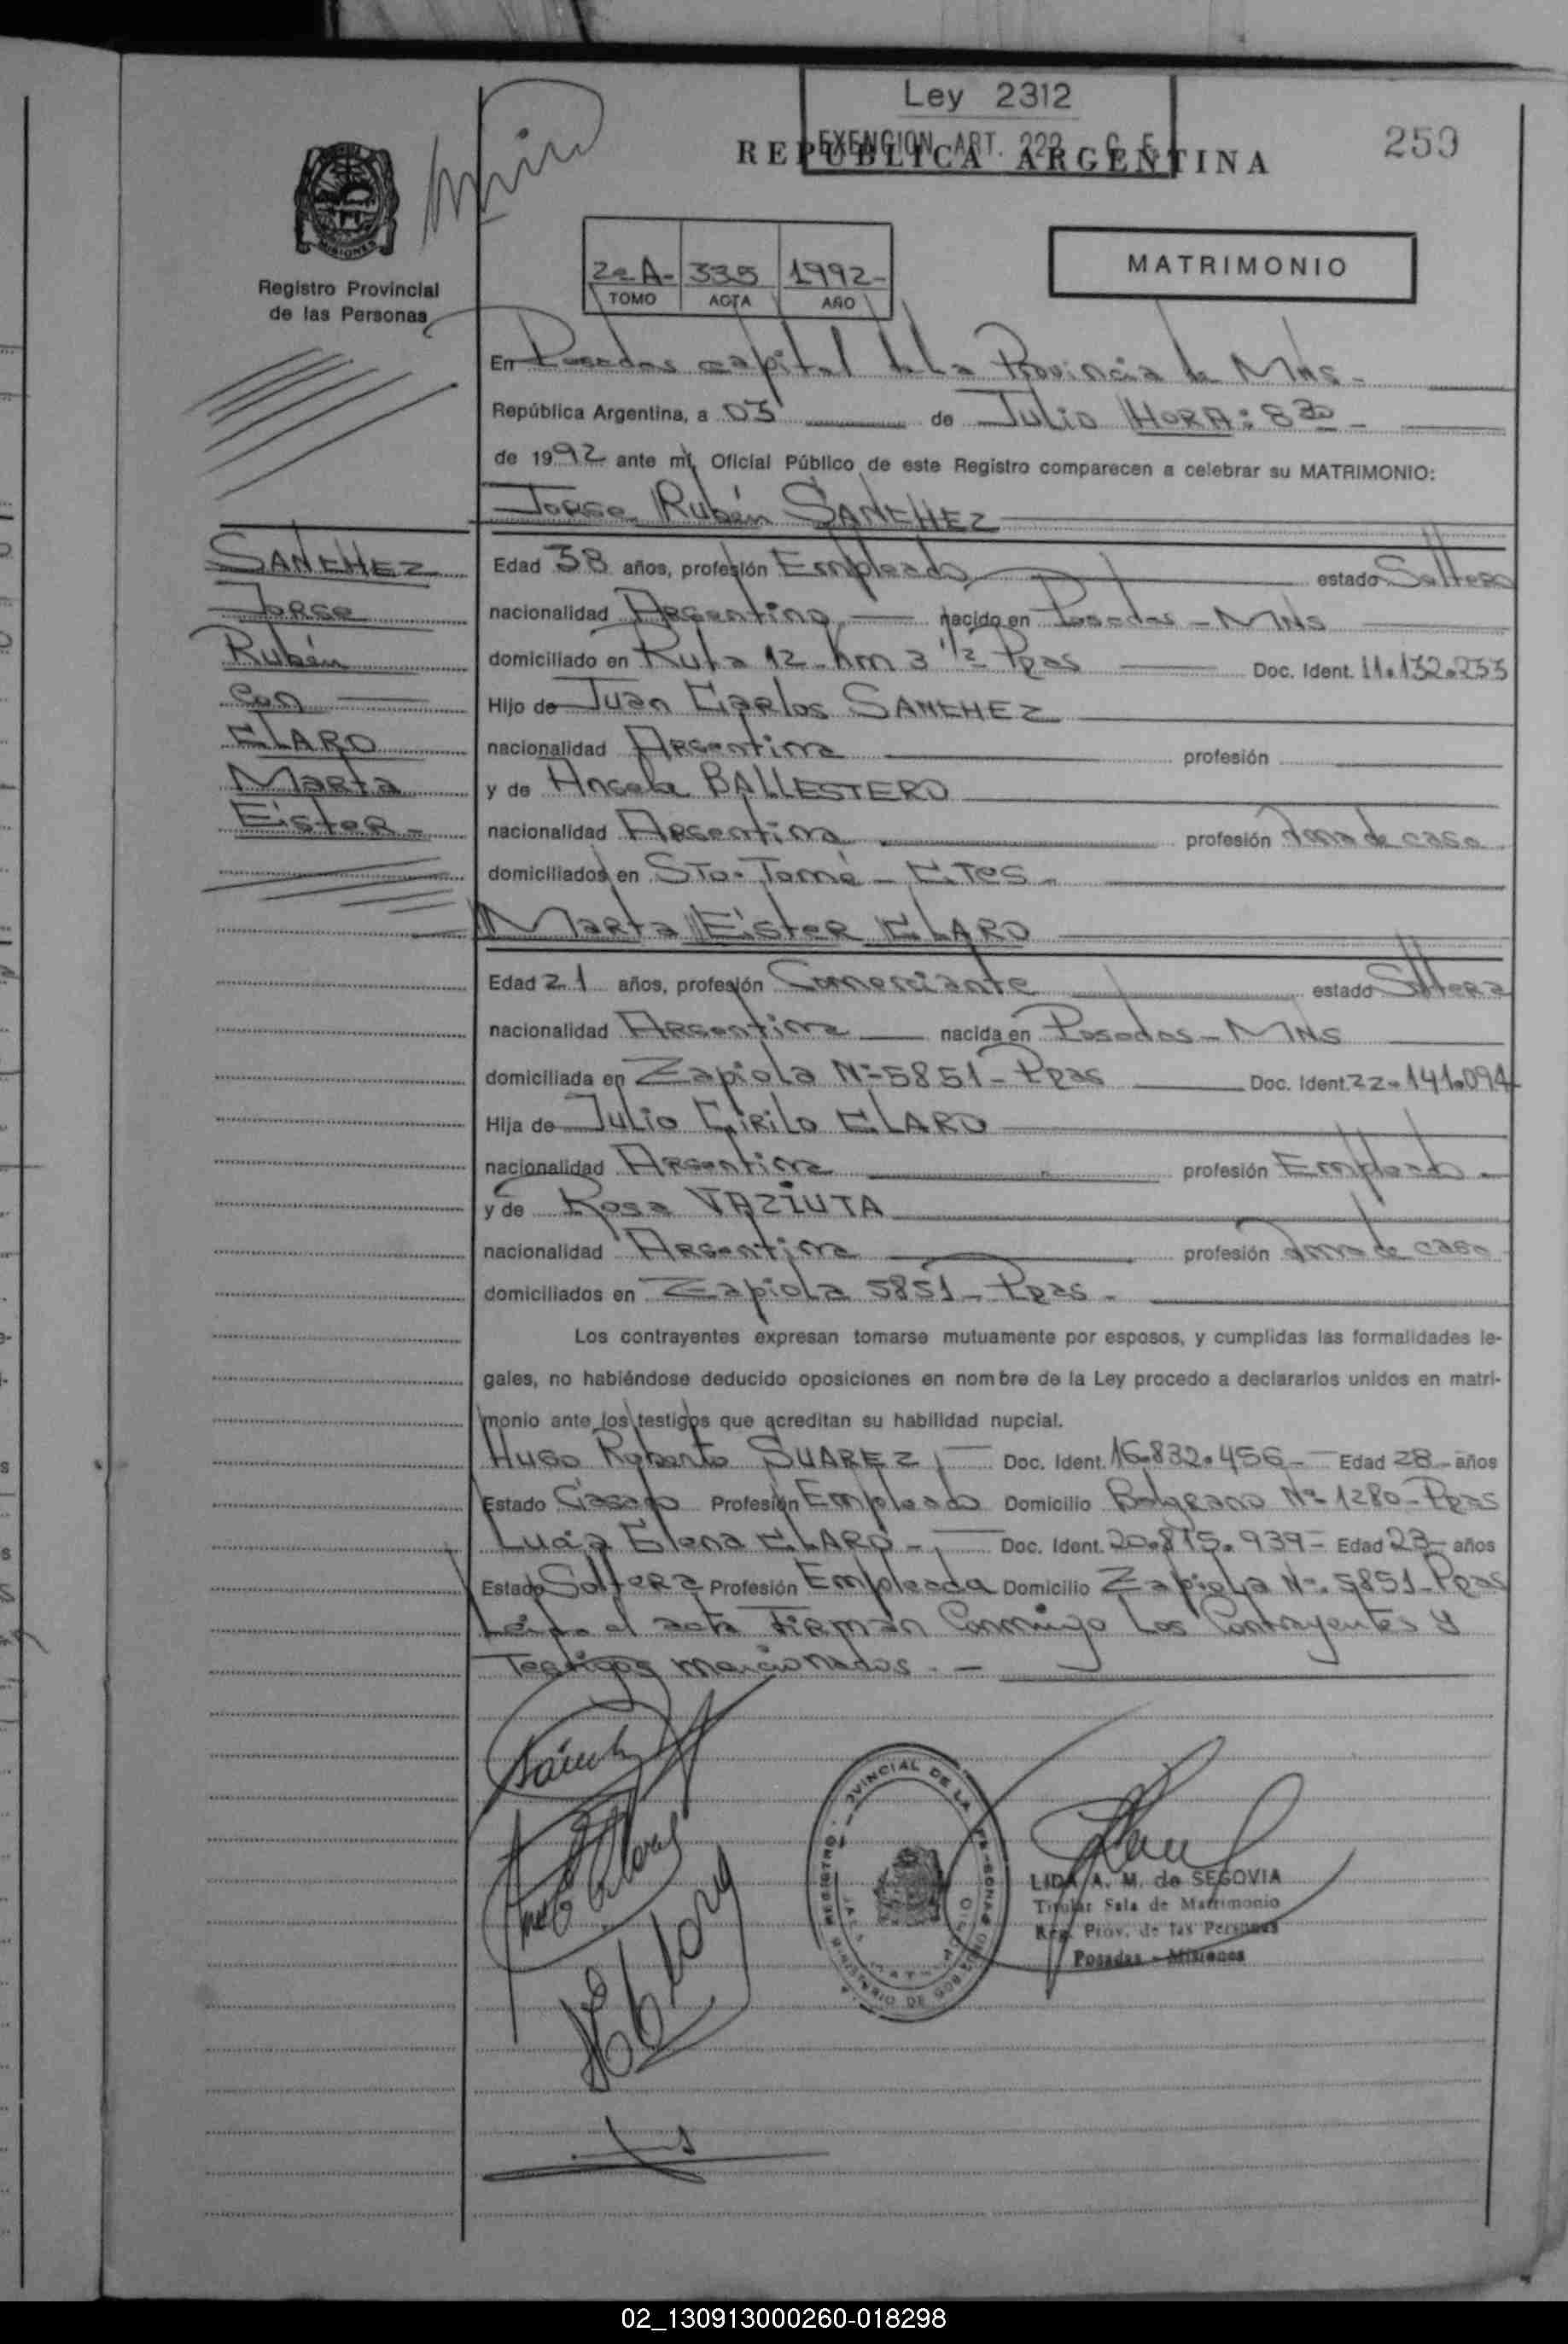 Ley 2312
EXENCION ART. 222 C. F.
REPUBLICA ARGENTINA
259
MISIONES
Registro Provincial
de las Personas
2e A- 335 1992-
TOMO ACTA AÑO
MATRIMONIO
En Posadas capital de La Provincia de MNS-
República Argentina, a 03 de Julio HORA: 8 30-
de 1992 ante mí, Oficial Público de este Registro comparecen a celebrar su MATRIMONIO:
Jorge Rubén SANCHEZ
SANCHEZ
Jorge
Rubén
con
CLARO
Marta
Ester-
Edad 38 años, profesión Empleado estado Soltero
nacionalidad Argentino nacido en Posadas - MNS
domiciliado en Ruta 12 Km 3 1/2 Ppas Doc. Ident. 11.132.253
Hijo de Juan Carlos SANCHEZ
nacionalidad Argentina profesión
y de Angela BALLESTERO
nacionalidad Argentina profesión Ama de casa
domiciliados en Sto. Tomé - CTES-
Marta Ester CLARO
Edad 21 años, profesión Comerciante estado Soltera
nacionalidad Argentina nacida en Posadas - MNS
domiciliada en Zapiola Nº 5851 - Ppas Doc. Ident. 22.141.094
Hija de Julio Cirilo CLARO
nacionalidad Argentina profesión Empleado -
y de Rosa VAZIUTA
nacionalidad Argentina profesión Ama de casa
domiciliados en Zapiola 5851 - Ppas -
Los contrayentes expresan tomarse mutuamente por esposos, y cumplidas las formalidades le-
gales, no habiéndose deducido oposiciones en nombre de la Ley procedo a declararlos unidos en matri-
monio ante los testigos que acreditan su habilidad nupcial.
Hugo Roberto SUAREZ, Doc. Ident. 16.832.456- Edad 28 años
Estado Casado Profesión Empleado Domicilio Belgrano Nº 1280 - Ppas
Lucia Elena CLARO-, Doc. Ident. 20.815.939- Edad 23 años
Estado Soltera Profesión Empleada Domicilio Zapiola Nº 5851 - Ppas
Leída el acta Firman Conmigo Los Contrayentes y
Testigos mencionados. -
LIDA A. M. de SEGOVIA
Titular Sala de Matrimonio
Reg. Prov. de las Personas
Posadas - Misiones
02_130913000260-018298